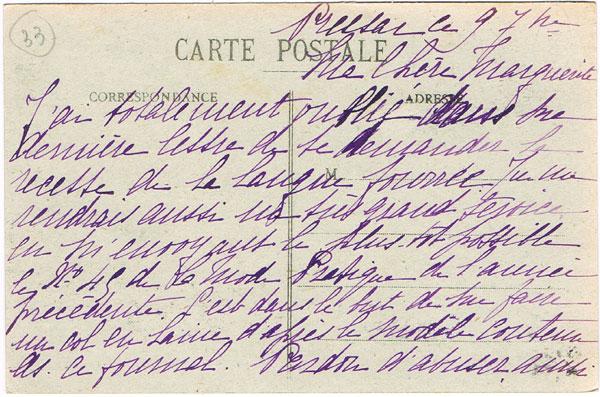 33
Pressac ce 9 7bre
CARTE POSTALE
Ma Chère Marguerite
CORRESPONDANCE
ADRESSE
J'ai totalement oublié dans ma
dernière lettre de te demander la
recette de la langue fourrée. Tu me
M
rendrais aussi un très grand service
en m'envoyant le plus tôt possible
le No 45 de la Mode Pratique de l'année
précédente. C'est dans le but de me faire
un col en laine d'après le modèle contenu
ds. ce journal. Pardon d'abuser ainsi